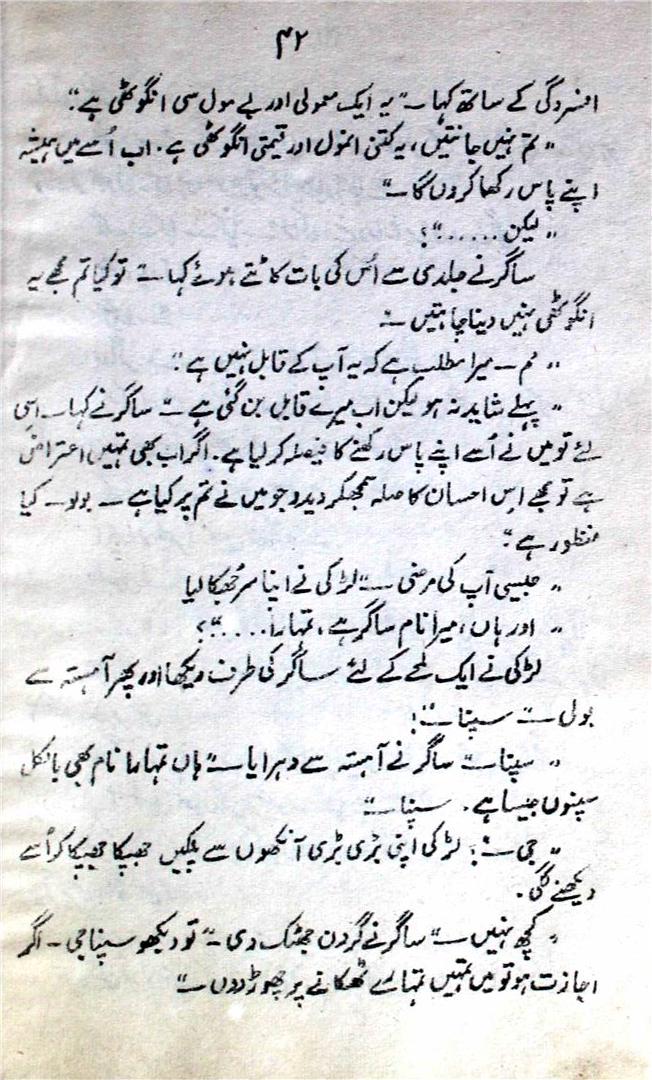 ۴۲
افسردگی کے ساتھ کہا۔“ یہ ایک معمولی اور بے مول سی انگوٹھی ہے“
”تم نہیں جانتیں، یہ کتنی انمول اور قیمتی انگوٹھی ہے۔ اب اُسے میں ہمیشہ
اپنے پاس رکھا کروں گا۔“
”لیکن......“؟
ساگر نے جلدی سے اُس کی بات کاٹتے ہوئے کہا۔“ تو کیا تم مجھے یہ
انگوٹھی نہیں دینا چاہتیں۔“
”نہ۔ میرا مطلب ہے کہ یہ آپ کے قابل نہیں ہے“
”پہلے شاید نہ ہو لیکن اب میرے قابل بن گئی ہے۔“ ساگر نے کہا۔ اسی
لئے تو میں نے اُسے اپنے پاس رکھنے کا فیصلہ کر لیا ہے۔ اگر اب بھی تمہیں اعتراض
ہے تو مجھے اس احسان کا صلہ سمجھکر دیدو جو میں نے تم پر کیا ہے۔ بولو۔ کیا
منظور ہے“
”جیسی آپ کی مرضی۔“ لڑکی نے اپنا سر جُھکا لیا
”اور ہاں، میرا نام ساگر ہے، تمہارا.....“؟
لڑکی نے ایک لمحے کے لئے ساگر کی طرف دیکھا اور پھر آہستہ سے
بولی۔“ سپنا۔“!
”سپنا۔“ ساگر نے آہستہ سے دہرایا۔“ ہاں تمہارا نام بھی بالکل
سپنوں جیسا ہے۔ سپنا۔“
”جی۔“؟ لڑکی اپنی بڑی بڑی آنکھوں سے پلکیں جھپکا جھپکا کر اُسے
دیکھنے لگی۔
”کچھ نہیں۔“ ساگر نے گردن جھٹک دی۔“ تو دیکھو سپنا جی۔ اگر
اجازت ہو تو میں تمہیں تمہارے ٹھکانے پر چھوڑ دوں۔“